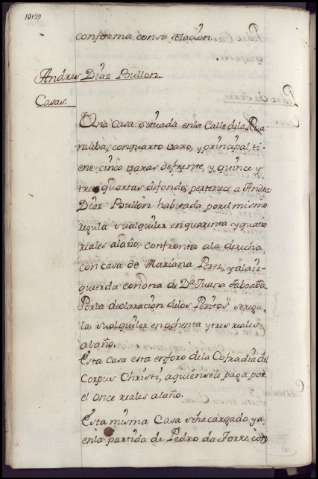 conforma con su relacion
Andres Diaz Bullon
Casas.
Una Casa situada en la Calle de la
con quarto vaxo, y principal, ti
ene cinco varas de frente, y quince y
tres quartas de fondo, pertenece a Andres
Diaz Bullon havitada por el mismo
regula su alquiler en quarenta y quatro
reales al año, confronta a la derecha
con casa de Mariana Perez, y a la iz
quierda con otra de Dn Juan de
Por la declaracion de los Peritos se regu
la su alquiler en ochenta y tres reales
al año.
Esta casa esta en foro de la Cofradia del
Corpus Christi, a quien se le paga por
el once reales al año.
Esta misma Casa se ha cargado ya
en la partida de Pedro da Torre con